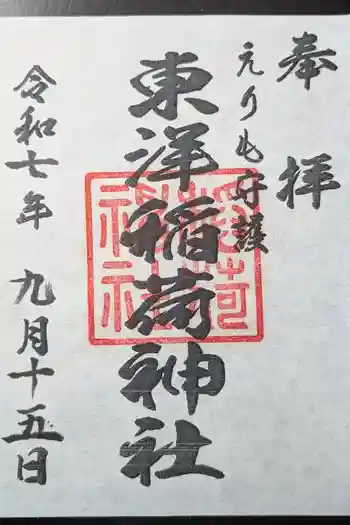 奉拝
えりも守護
東洋稲荷神社
令和七年 九月十五日